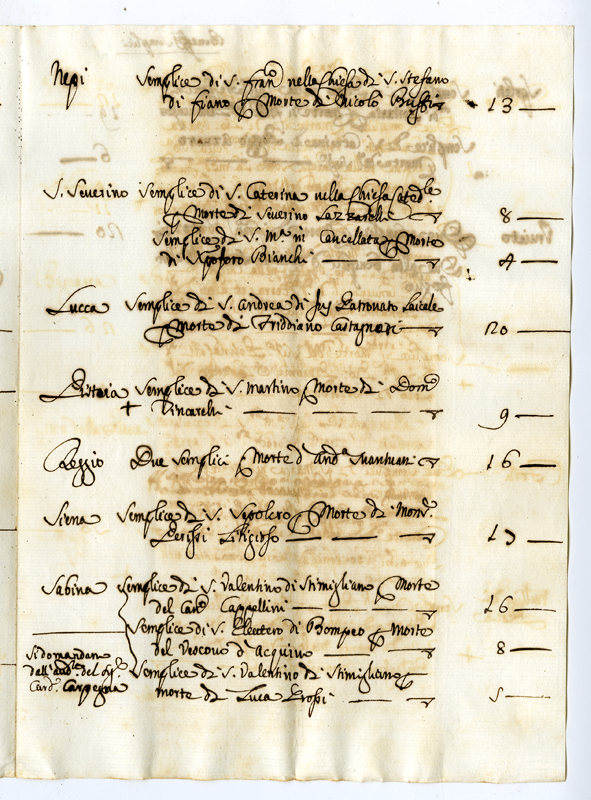 Nepi Semplice di S. Fran.co nella Chiesa di S. Stefano
di Fiano p Morte di Nicolò Buffi 13
S. Severino Semplice di S. Caterina nella Chiesa Cated.le
p Morte di Severino Lazzarelli 8
Semplice di S. M.a in Cancellata p Morte
di Xpoforo Bianchi 4
Lucca Semplice di S. Andrea di Jus Patronato Laicale
p Morte di Friddiano Castagnori 20
Pistoia Semplice di S. Martino p Morte di Dom.co
+ Vincarelli 9
Reggio Due Semplici p Morte d And.a Mantuani 16
Siena Semplice di S. Sepolcro p Morte di Mons.r
13
Sabina Semplice di S. Valentino di Stimigliano p Morte
del Can.co Cappellini 16
Semplice di S. Eleutero di Pompeo p Morte
del Vescovo d'Acquino 8
Si domandano
dall'aud.re del Sig.r Semplice di S. Valentino di Stimigliano p
Card. Carpegna morte di Luca Grossi 5